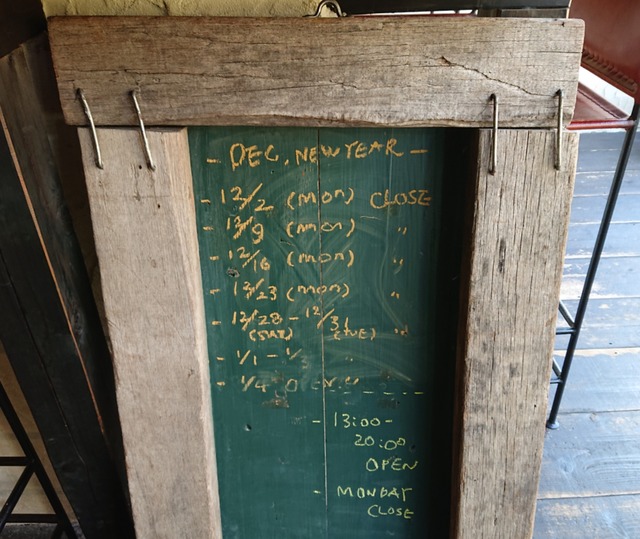 - DEC, NEW YEAR -
- 12/2 (mon) CLOSE
- 12/9 (mon) "
- 12/16 (mon) "
- 12/23 (mon) "
- 12/28 - 12/31 "
(SAT) (TUE)
- 1/1 - 1/3 "
- 1/4 OPEN
- 13:00 -
20:00
OPEN
- MONDAY
CLOSE